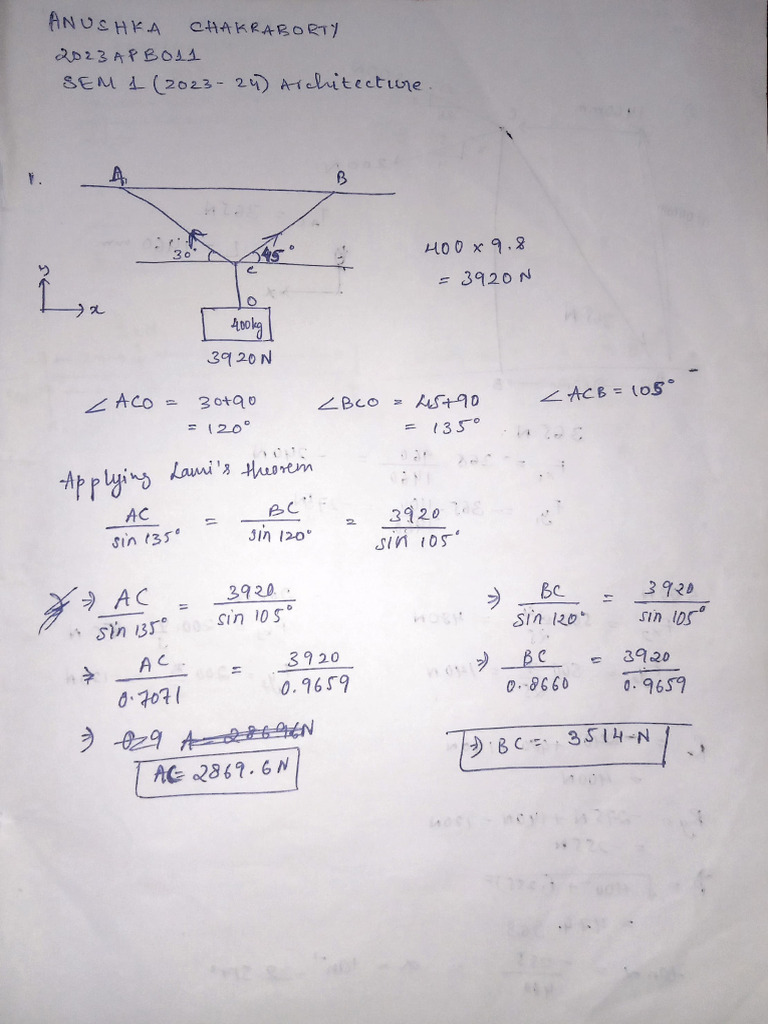 ANUSHKA CHAKRABORTY
2023APB011
SEM 1 (2023-24) Architecture.
1.
A B
30° 45°
C
y
x
O
400kg
3920N
400 × 9.8
= 3920 N
∠ACO = 30+90
= 120°
∠BCO = 45+90
= 135°
∠ACB = 105°
Applying Lami's theorem
AC/sin 135° = BC/sin 120° = 3920/sin 105°
⇒ AC/sin 135° = 3920/sin 105°
⇒ AC/0.7071 = 3920/0.9659
⇒ A = 28696N
AC = 2869.6N
⇒ BC/sin 120° = 3920/sin 105°
⇒ BC/0.8660 = 3920/0.9659
⇒ BC = 3514 N